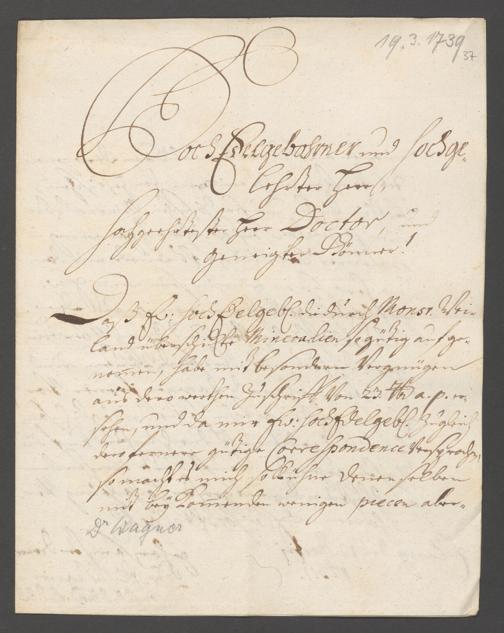 19. 3. 1739
37
HochEdelgebohrner und Hochge-
lehrter Herr,
Hochgeehrtester Herr Doctor, und
geneigter Gönner!
Daß Ew: HochEdelgeb. die durch Monsr. Wei-
land überschickte Mineralien so gütig aufge-
nommen, habe mit besonderem Vergnügen
aus dero werthen Zuschrifft vom 23th a. p. er-
sehen, und da mir Ew: HochEdelgeb. zugleich
dero fernere gütige Correspondence versprochen,
so macht mich so kühne denenselben
mit bey kommenden wenigen piecen aber-
Dr Wagner